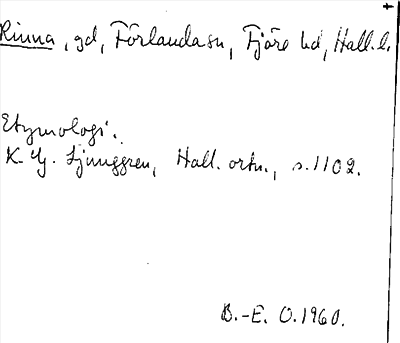 Rinna, gd, Förlanda sn, Fjäre hd, Hall. l.
Etymologi.
K. G. Ljunggren, Hall. ortn., s. 1102.
B.-E. O. 1960.